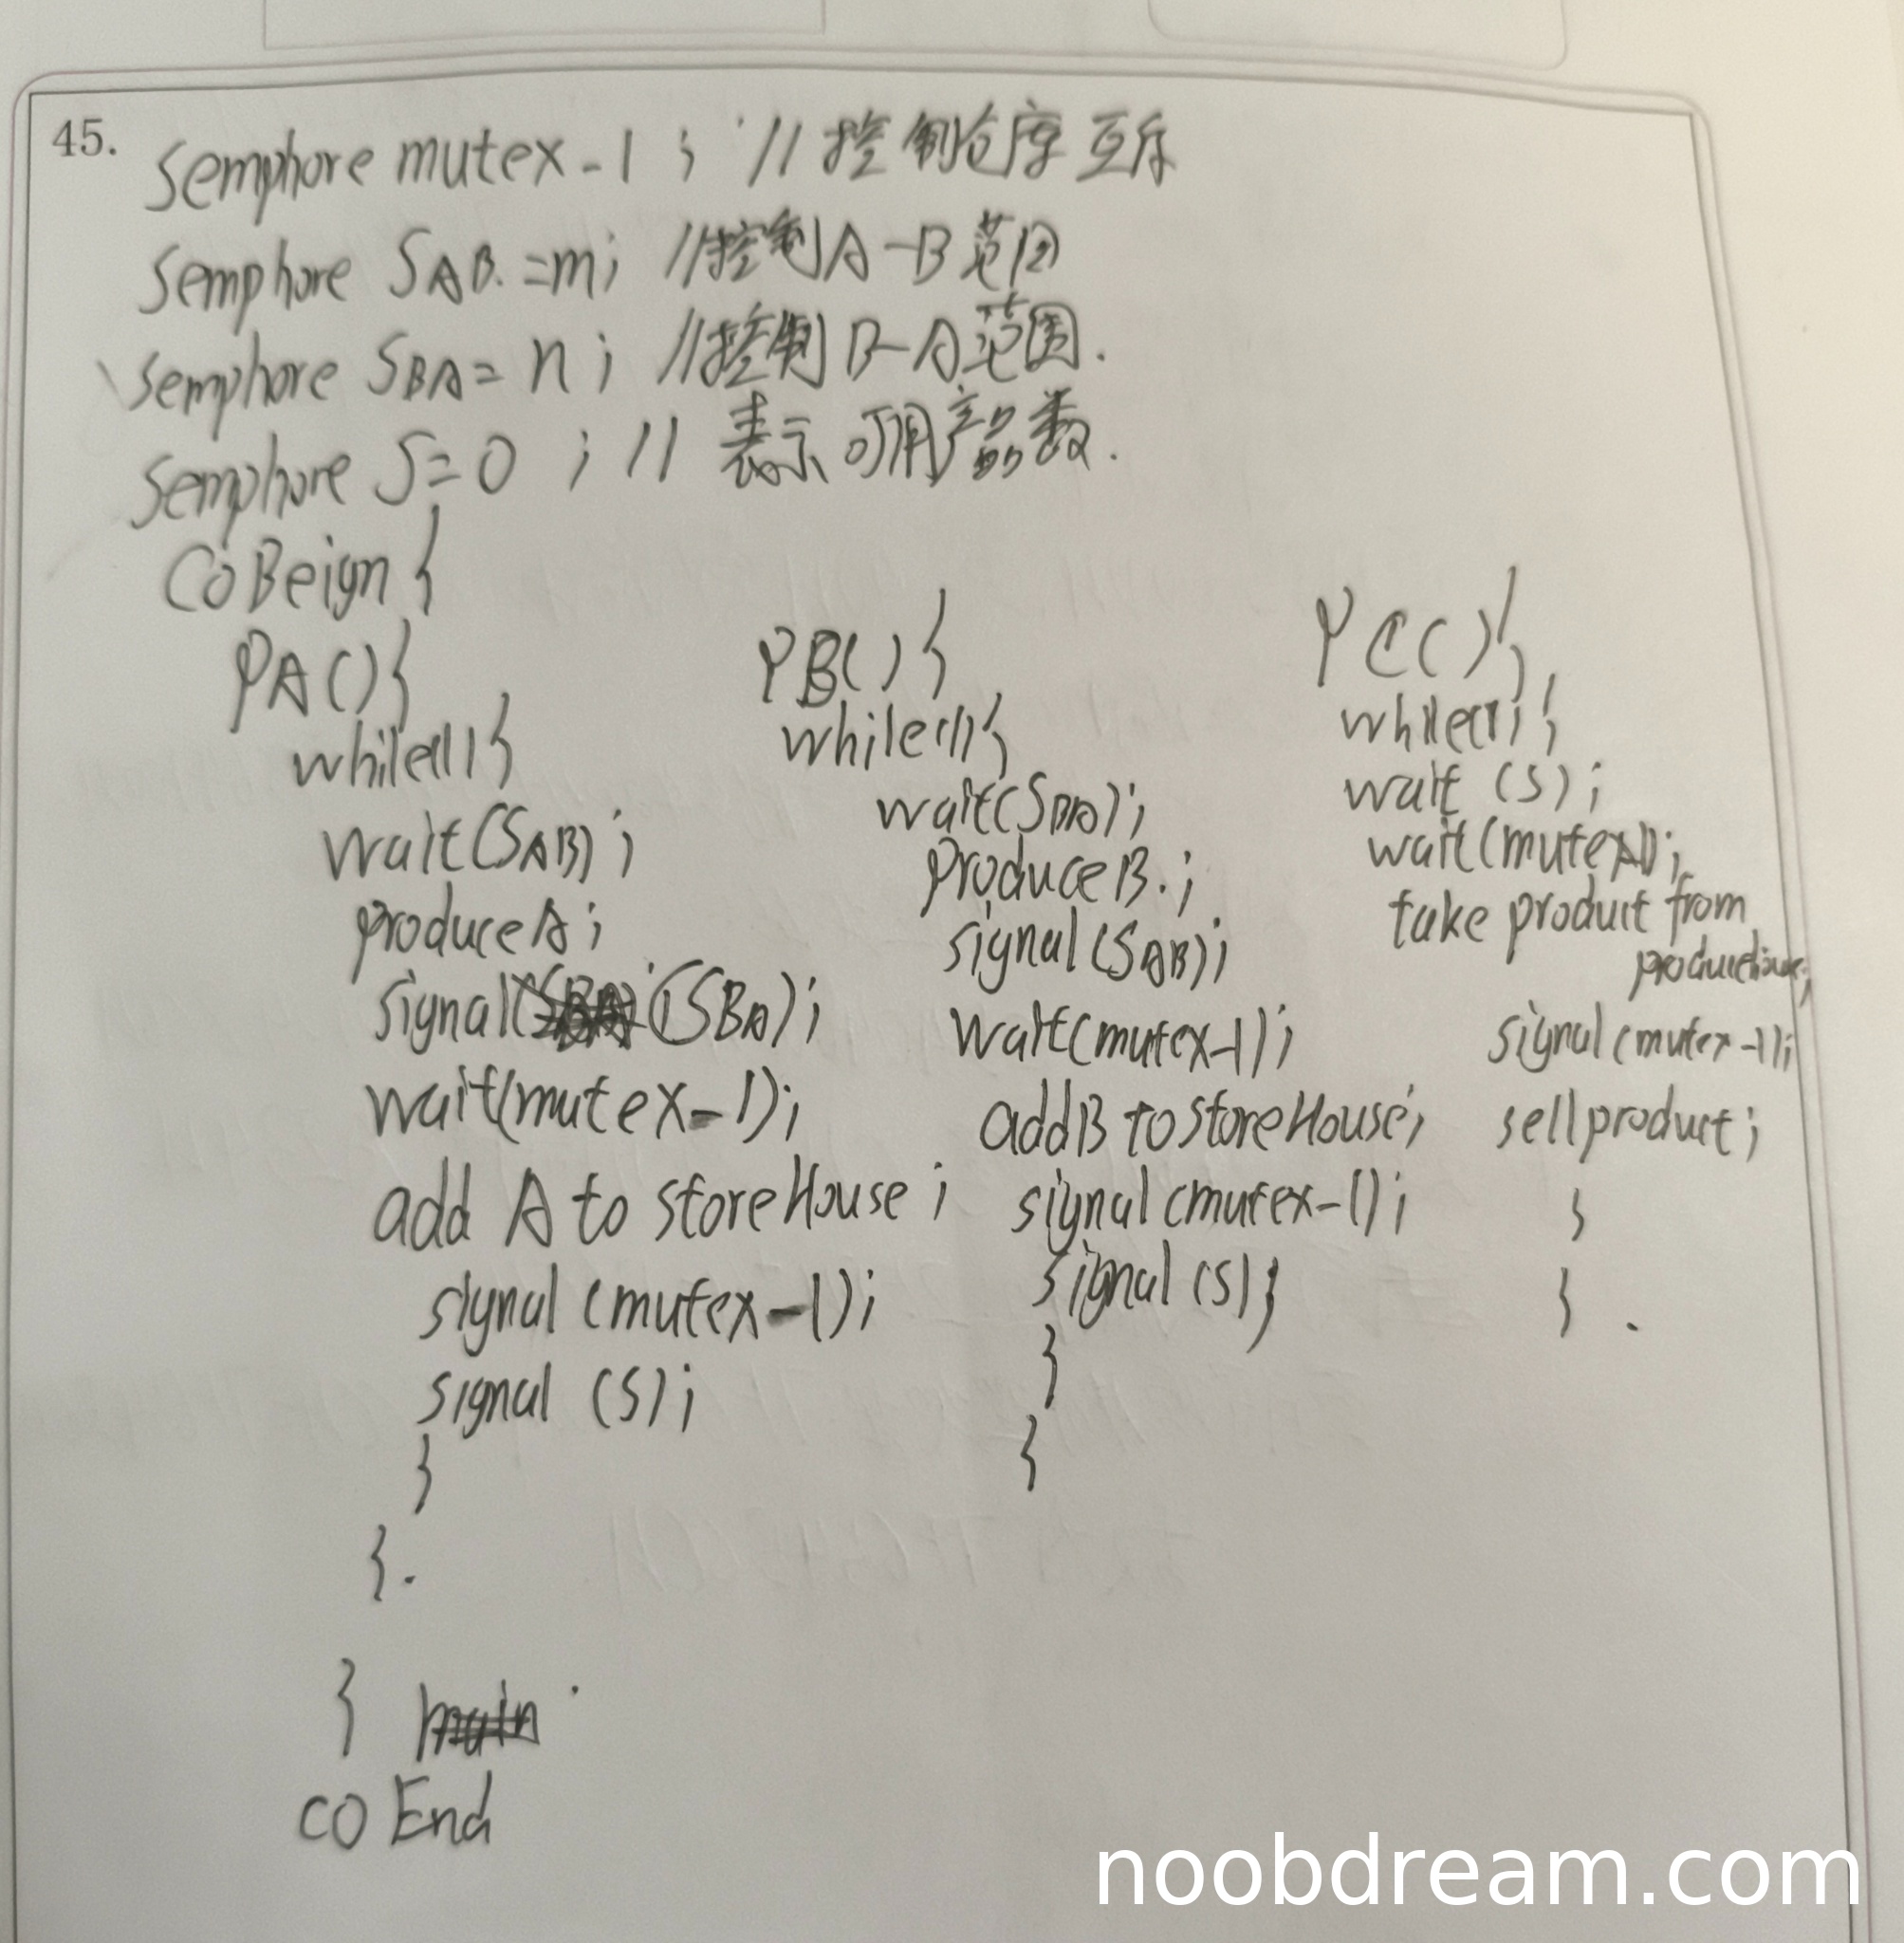 45.
Semphore mutex-1; //控制仓库互斥
Semphore SAB.=m; //控制A-B范围
Semphore SBA=n; //控制B-A范围.
Semphore S=0; //表示可用产品数.
CoBeign{
PA(){
while(1){
wait(SAB);
produceA;
signal(SBA);
wait(mutex-1);
add A to storeHouse;
signal(mutex-1);
signal(S);
}
}.
PB(){
while(1){
wait(SBA);
produceB.;
signal(SAB);
wait(mutex-1);
addB to storeHouse;
signal(mutex-1);
signal(S);
}
}
PC(){
while(1){
wait(S);
take product from
signal(mutex-1);
sellproduct;
}
}.
}
coEnd
noobdream.com